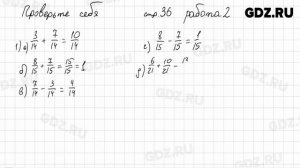 Проверьте себя стр 36 работа 2
GDZ.RU
1) а) 3/14 + 7/14 = 10/14
б) 8/15 + 7/15 = 15/15 = 1
в) 7/14 - 3/14 = 4/14
г) 8/15 - 7/15 = 1/15
д) 6/21 + 10/21 -
GDZ.RU